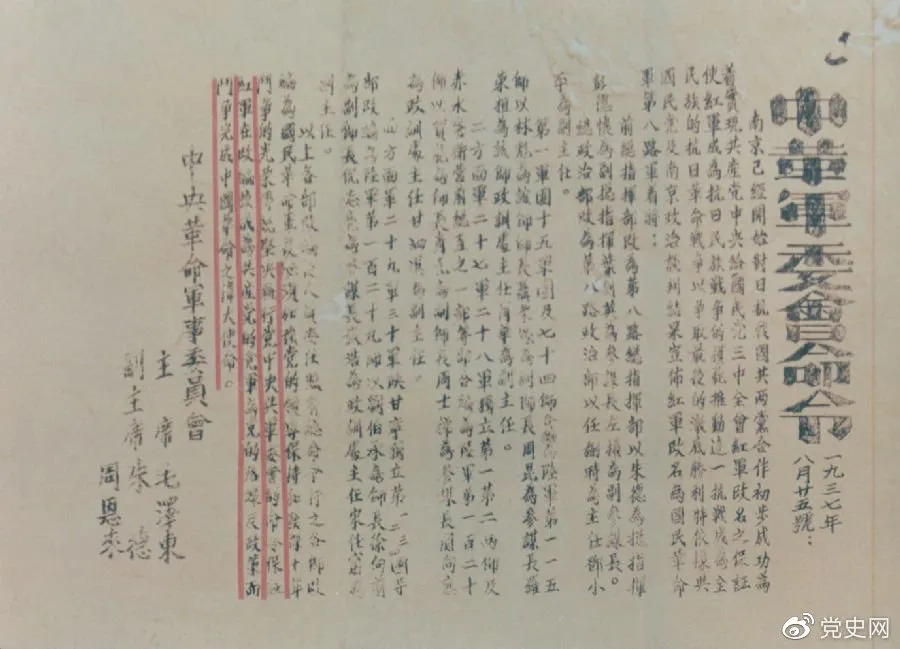 中革軍委會命令
一九三七年
八月廿五號：
南京已經開始對日抗戰國共兩黨合作初步成功為
着實現共產黨中央給國民黨三中全會紅軍改名之保証
使紅軍成為抗日民族戰爭的模範推動這一抗戰成為全
民族的抗日革命戰爭以爭取最後的澈底勝利特依據與
國民黨及南京政治談判結果宣佈紅軍改名為國民革命
軍第八路軍着將：
前總指揮部改為第八路總指揮部以朱德為總指揮
彭德懷為副總指揮葉劍英為參謀長左權為副參謀長。
總政治部改為第八路政治部以任弼時為主任鄧小
平為副主任。
第一軍團十五軍團及七十四師合編為陸軍第一一五
師以林彪為該師師長聶榮臻為副師長周昆為參謀長羅
榮桓為該師政訓處主任蕭華為副主任。
二方面軍二十七軍二十八軍獨立第一第二兩師及
赤水警衛營前總直之一部等部合編為陸軍第一百二十
師以賀龍為師長蕭克為副師長周士第為參謀長關向應
為政訓處主任甘泗淇為副主任。
四方面軍二十九軍三十軍陝甘寧獨立第一二三四等
部改編為陸軍第一百二十九師以劉伯承為師長徐向前
為副師長倪志亮為參謀長張浩為政訓處主任宋任窮為
副主任。
以上各部改編後人員委任照前總命令行之各部改
編為國民革命軍後必須加強黨的領導保持和發揮十年
鬥爭的光榮傳統堅決執行黨中央與軍委會的命令保証
紅軍在改編後成為共產黨的黨軍為黨的路線及政策而
鬥爭完成中國革命之偉大使命。
中央革命軍事委員會
主席毛澤東
副主席朱德
周恩來
党史网